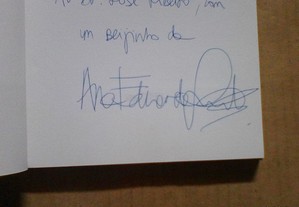 Ao Dr. José Ribeiro, com
um beijinho da
Ana Eduarda